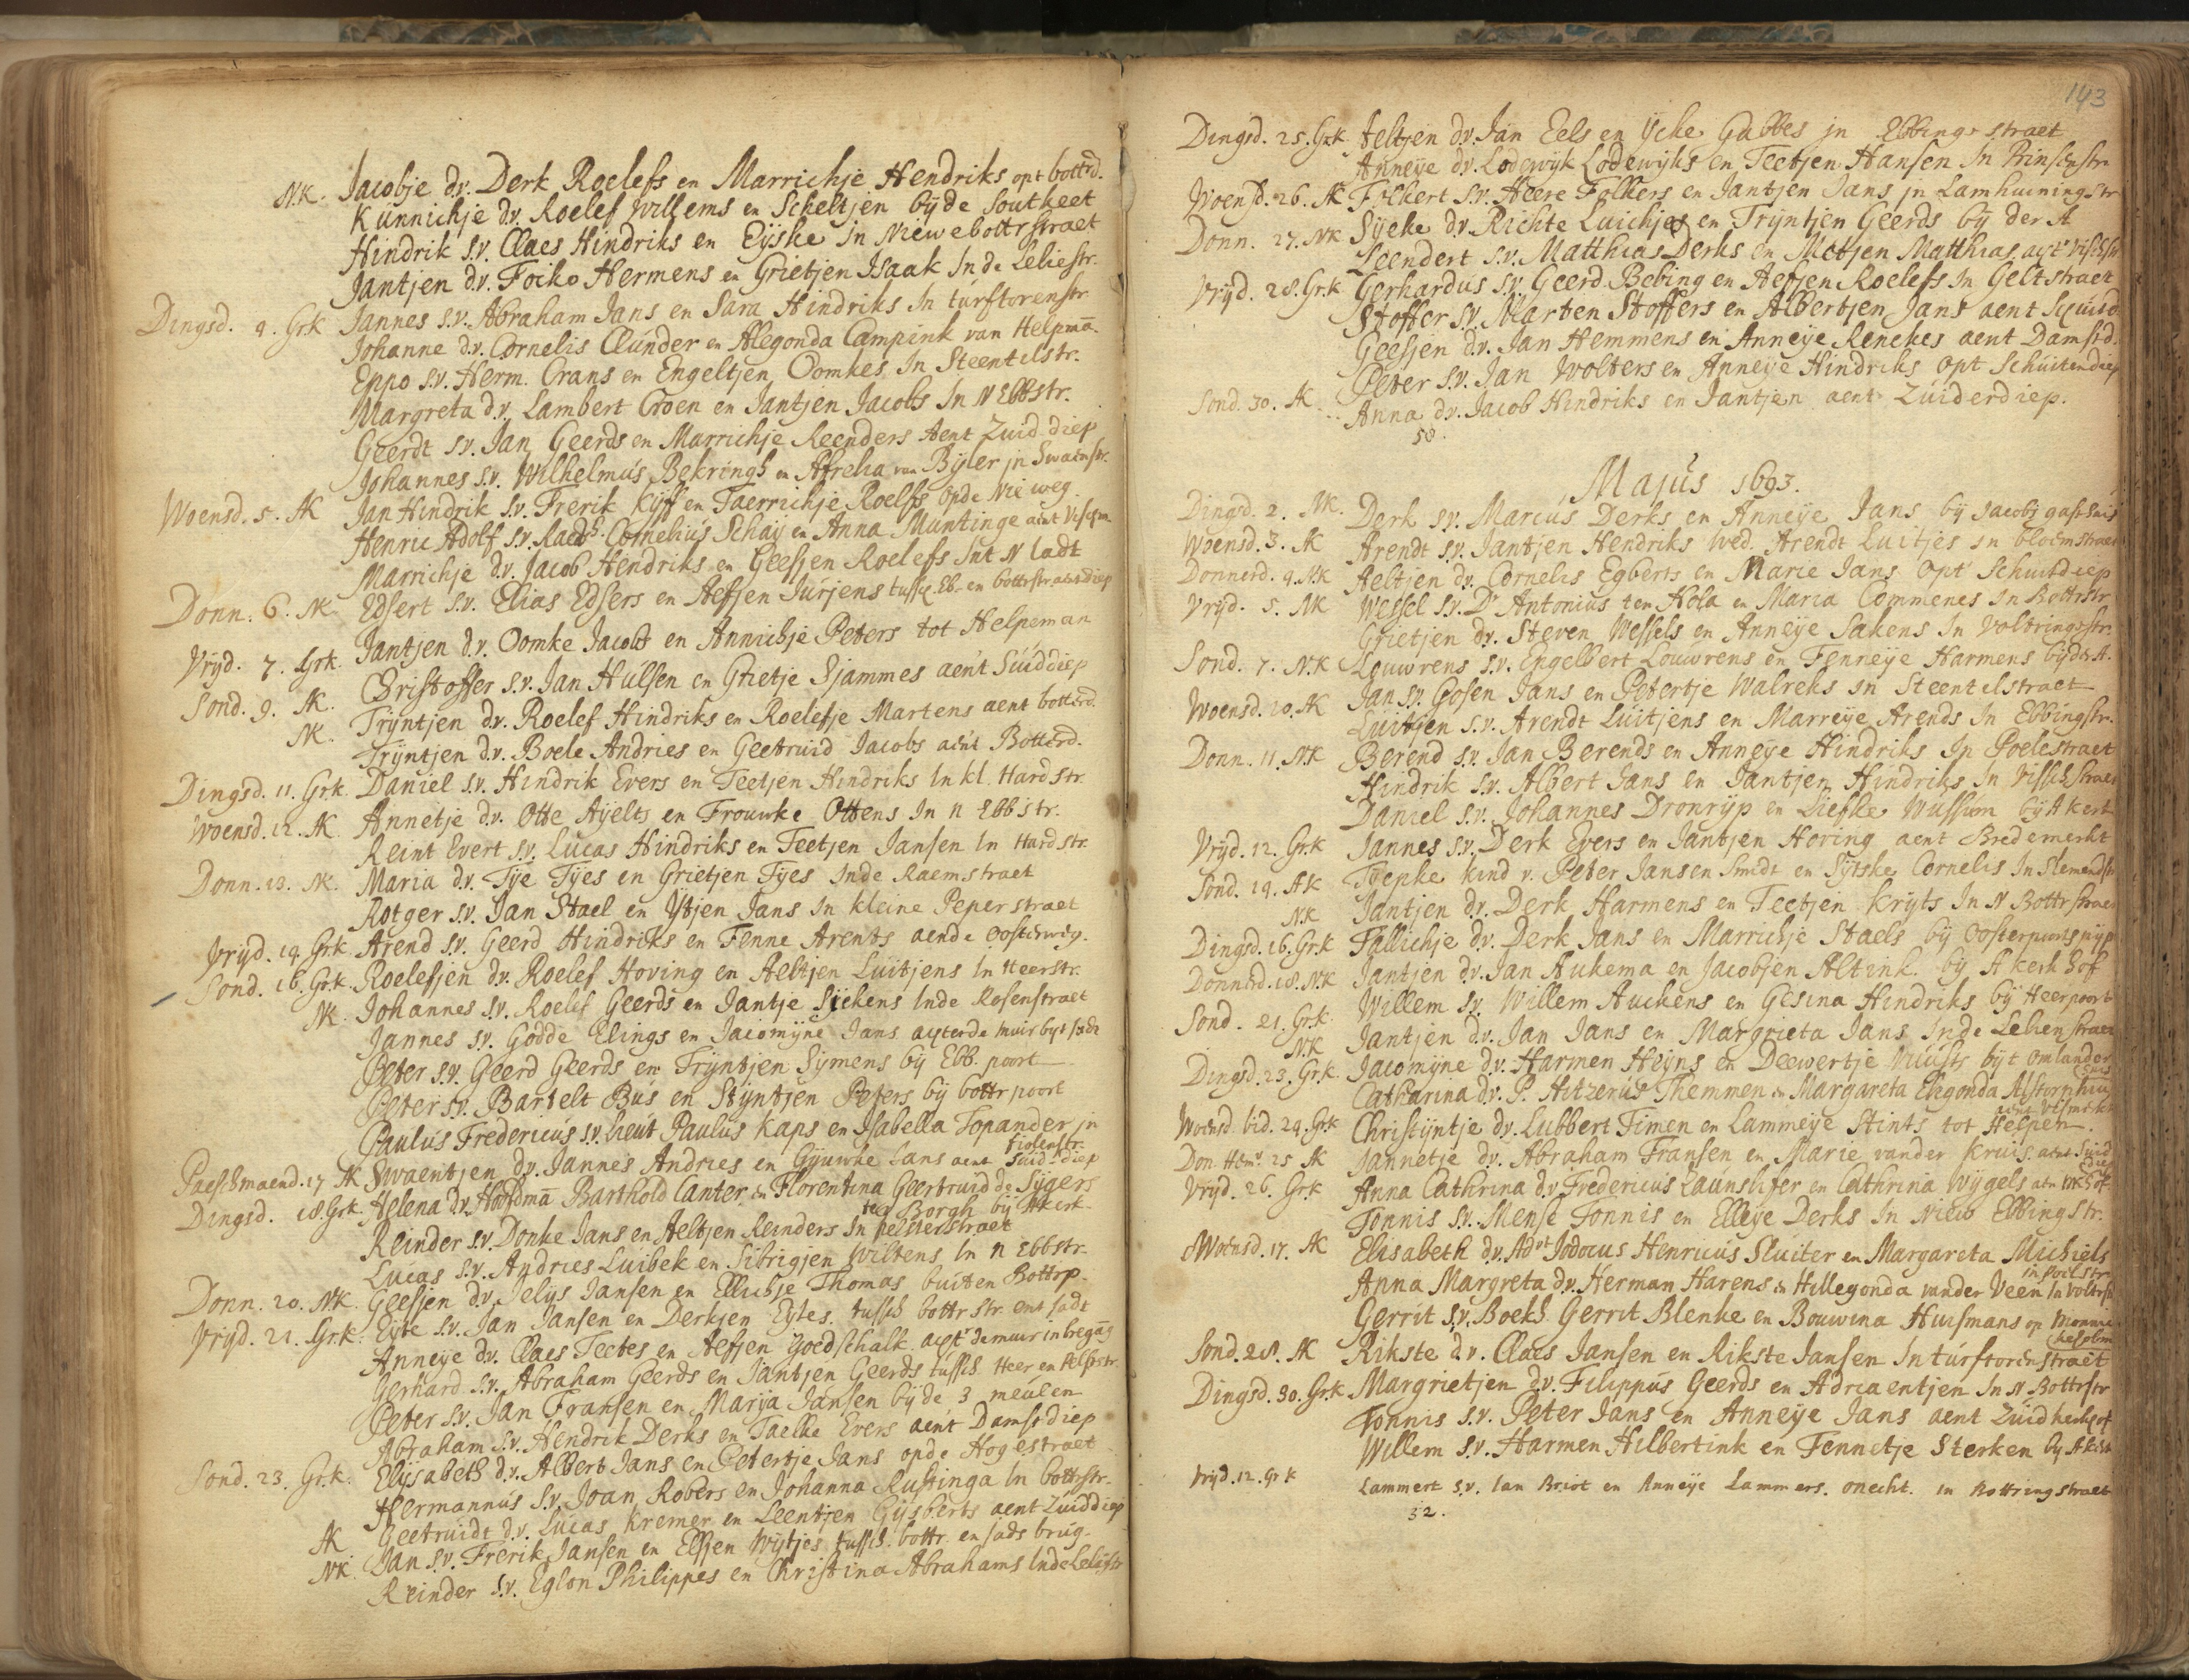 N.K. Jacobje d.v. Derk Roelefs en Marrichje Hendriks opt botterd.
Kunnichje d.v. Roelef Willems en Scheltjen bijde Soutkeet
Hindrik s.v. Claes Hindriks en Eijske in Niewebottrstraet
Jantjen d.v. Focko Hermens en Grietjen Isaak Inde Leliestr.
Dingsd. 4. Grk Jannes s.v. Abraham Jans en Sara Hindriks In turftorenstr
Johanne d.v. Cornelis Clúnder en Alegonda Campink van Helpmā.
Eppo s.v. Herm. Crans en Engeltjen Oomkes In Steentilstr.
Margreta d.v. Lambert Croen en Jantjen Jacobs In N Ebbstr.
Geerdt s.v. Jan Geerds en Marrichje Reenders Aent Zuid diep
Johannes s.v. Wilhelmús Bekringh en Afreha van Bijler jn Swaenstr.
Woensd. 5. AK Jan Hindrik s.v. Frerik Kijff en Taerrichje Roelfs opde Nie weg
Henric Adolf s.v. Raedsh. Cornelius Schaij en Anna Muntinge aent Vischm.
Marrichje d.v. Jacob Hendriks en Geesjen Roelefs Int N ladt
Donn. 6. NK Edsert s.v. Elias Edsers en Aefjen Jurjens tussch. Eb- en bottrstraetsdiep
Jantjen d.v. Oomke Jacobs en Annichje Peters tot Helpeman
Vrijd. 7. Grk. Christoffer s.v. Jan Húlsen en Grietje Sjammes aent Súiddiep
Sond. 9. AK. Trijntjen d.v. Roelef Hindriks en Roelefje Martens aent botterd.
NK. Trijntjen d.v. Boele Andries en Geetruid Jacobs aent Botterd.
Dingsd. 11. Grk. Daniel s.v. Hindrik Evers en Teetjen Hindriks In kl. Hardstr.
Woensd. 12. AK. Annetje d.v. Otte Aijelts en Frouwke Ottens In n Ebbstr.
Reint Evert s.v. Lucas Hindriks en Teetjen Jansen In Hardstr.
Donn. 13. NK. Maria d.v. Tije Tijes en Grietjen Tijes Inde Raemstraet
Rotger s.v. Jan Stael en Ytjen Jans In kleine Peperstraet
Vrijd. 14. Grk. Arend s.v. Geerd Hindriks en Fenne Arents aende Oosterweg.
Sond. 16. Grk. Roelefjen d.v. Roelef Hoving en Aeltjen Luitjens In Heerstr.
NK. Johannes s.v. Roelef Geerds en Jantje Sijckens Inde Rosenstraet
Jannes s.v. Godde Elings en Jacomijne Jans achterde muir
Peter s.v. Geerd Geerds en Trijntjen Sijmens bij Ebb. poort
Peter s.v. Bartelt Bús en Stijntjen Peters bij bottrpoort
Paulús Fredericús s.v. Lieut Paulús Kaps en Isabella Topander jn
Fiolenstr.
Paeschmaend. 17 AK Swaentjen d.v. Jannes Andries en Gijuwke Jans aent Suid diep
Dingsd. 18. Grk. Helena d.v. Hoofdmā Barthold Canter, en Florentina Geertruid de Sijgers
ter Borgh bij Akerk
Reinder s.v. Donke Jans en Aeltjen Reinders In pelsterstraet
Lucas s.v. Andries Luibek en Sibrigjen Wiltens In n Ebbstr.
Donn. 20. NK. Geesjen d.v. Jelijs Jansen en Ellichje Thomas buiten Bottrp.
Vrijd. 21. Grk. Eijte s.v. Jan Jansen en Derkjen Eijtes. tussch bottrstr. ent sadt
Anneije d.v. Claes Teetes en Aefjen Goedschalk acht de muur
Gerhard s.v. Abraham Geerds en Jantjen Geerds tussch. Heer en Pelsstr.
Peter s.v. Jan Fransen en Marija Jansen bijde 3 meulen
Abraham s.v. Hendrik Derks en Taelke Evers aent Damstdiep
Sond. 23. Grk. Elijsabeth d.v. Albert Jans en Petertje Jans opde Hogestraet
Hermannús s.v. Joan Robers en Johanna Rustinga In bottrstr.
AK Geetruidt d.v. Lucas Kremer en Leentjen Gijsberts aent Zuiddiep
NK. Jan s.v. Frerik Jansen en Elsjen Wijtjes tussch. bottr. en sads brug.
Reinder s.v. Eglon Philippes en Christina Abrahams Inde Leliestr
143
Dingsd. 25. Grk Aeltjen d.v. Jan Eels en Ycke Gabbes jn Ebbingestraet
Anneije d.v. Lodewijk Lodewijks en Teetjen Hansen In Prinsenstr.
Woensd. 26. AK Folkert s.v. Heere Folkers en Jantjen Jans jn Lamhuiningstr
Donn. 27. NK Sijeke d.v. Richte Luichjes en Trijntjen Geerds bij der A
Leendert s.v. Matthias Derks en Metjen Matthias acht Vischstr
Vrijd. 28. Grk Gerhardus s.v. Geerd Bebing en Aefjen Roelefs In Geltstraet
Stoffer s.v. Marten Stoffers en Albertjen Jans aent Schuitd.
Geesjen d.v. Jan Hemmens en Anneije Renekes aent Damstd.
Peter s.v. Jan Wolters en Anneije Hindriks opt Schuitendiep
Sond. 30. AK Anna d.v. Jacob Hindriks en Jantjen aent Zuiderdiep.
58.
Majus 1693.
Dingsd. 2. NK. Derk s.v. Marcus Derks en Anneije Jans bij Jacobj gasthuis
Woensd. 3. AK Arendt s.v. Jantjen Hendriks wed. Arendt Luitjes in bloemstraet
Donnerd. 4. NK Aeltjen d.v. Cornelis Egberts en Marie Jans opt Schuitdiep
Vrijd. 5. NK Wessel s.v. Dr Antonius ten Hola en Maria Commenes In Bottrstr
Grietjen d.v. Steven Wessels en Anneije Sakens In Volteringestr.
Sond. 7. NK Louwrens s.v. Engelbert Louwrens en Fenneije Harmens bijdr A.
Woensd. 10. AK Jan s.v. Gosen Jans en Petertje Walreks in Steentilstraet
Luitjen s.v. Arendt Lúitjens en Marreije Arends In Ebbingstr.
Donn. 11. NK Berend s.v. Jan Berends en Anneije Hindriks In Poelestraet
Hindrik s.v. Albert Jans en Jantjen Hindriks In Visschstraet
Daniel s.v. Johannes Dronrijp en Liefke Wussim bij Akerk
Vrijd. 12. Grk Jannes s.v. Derk Evers en Jantjen Horing aent Bredemerkt
Sond. 14. AK Tjepke kind v. Peter Jansen Smidt en Sijtske Cornelis In
NK Jantjen d.v. Derk Harmens en Teetjen Krijts In N Bottrstraet
Dingsd. 16. Grk Fallichje d.v. Derk Jans en Marrichje Staels bij Oosterpoorts pijp
Donnerd. 18. NK Jantjen d.v. Jan Aukema en Jacobjen Altink. bij A kerkhof
Willem s.v. Willem Auckens en Gesina Hindriks bij Heerpoort
Sond. 21. Grk. Jantjen d.v. Jan Jans en Margrieta Jans Inde Lelienstraet
NK
Dingsd. 23. Grk. Jacomijne d.v. Harmen Heijns en Deewertje bijt omlander
huis
Catharina d.v. P. Hitzerús Themmen en Margareta Elegonda Alstorphius
Woensd. bid. 24. Grk Christijntje d.v. Lubbert Timen en Lammeije Stints tot Helpen.
Don. Hem. 25 AK Jannetje d.v. Abraham Fransen en Marie vander Kruis. aent Súid
diep
Vrijd. 26. Grk Anna Cathrina d.v. Fredericus en Cathrina Wijgels
Tonnis s.v. Mense Tonnis en Elleije Derks In Niew Ebbingstr.
Woensd. 17. AK Elisabeth d.v. Advt Jodocus Henricús Sluiter en Margareta Michiels
in Poelstr.
Anna Margreta d.v. Herman Harens en Hillegonda vander Veen In Voltrstr
Gerrit s.v. Boekh. Gerrit Blenke en Bouwina Huismans op
Sond. 28. AK Rikste d.v. Claes Jansen en Rikste Jansen In túrftorenstraet
Dingsd. 30. Grk Margrietjen d.v. Filippus Geerds en Adriaentjen In N Bottrstr
Tonnis s.v. Peter Jans en Anneije Jans aent Zuidkerkhof
Willem s.v. Harmen Hilbertink en Fennetje Sterken bij Akerk
Vrijd. 12. Grk Lammert s.v. Jan Briot en Anneije Lammers. onecht. in Bottringstraet
32.